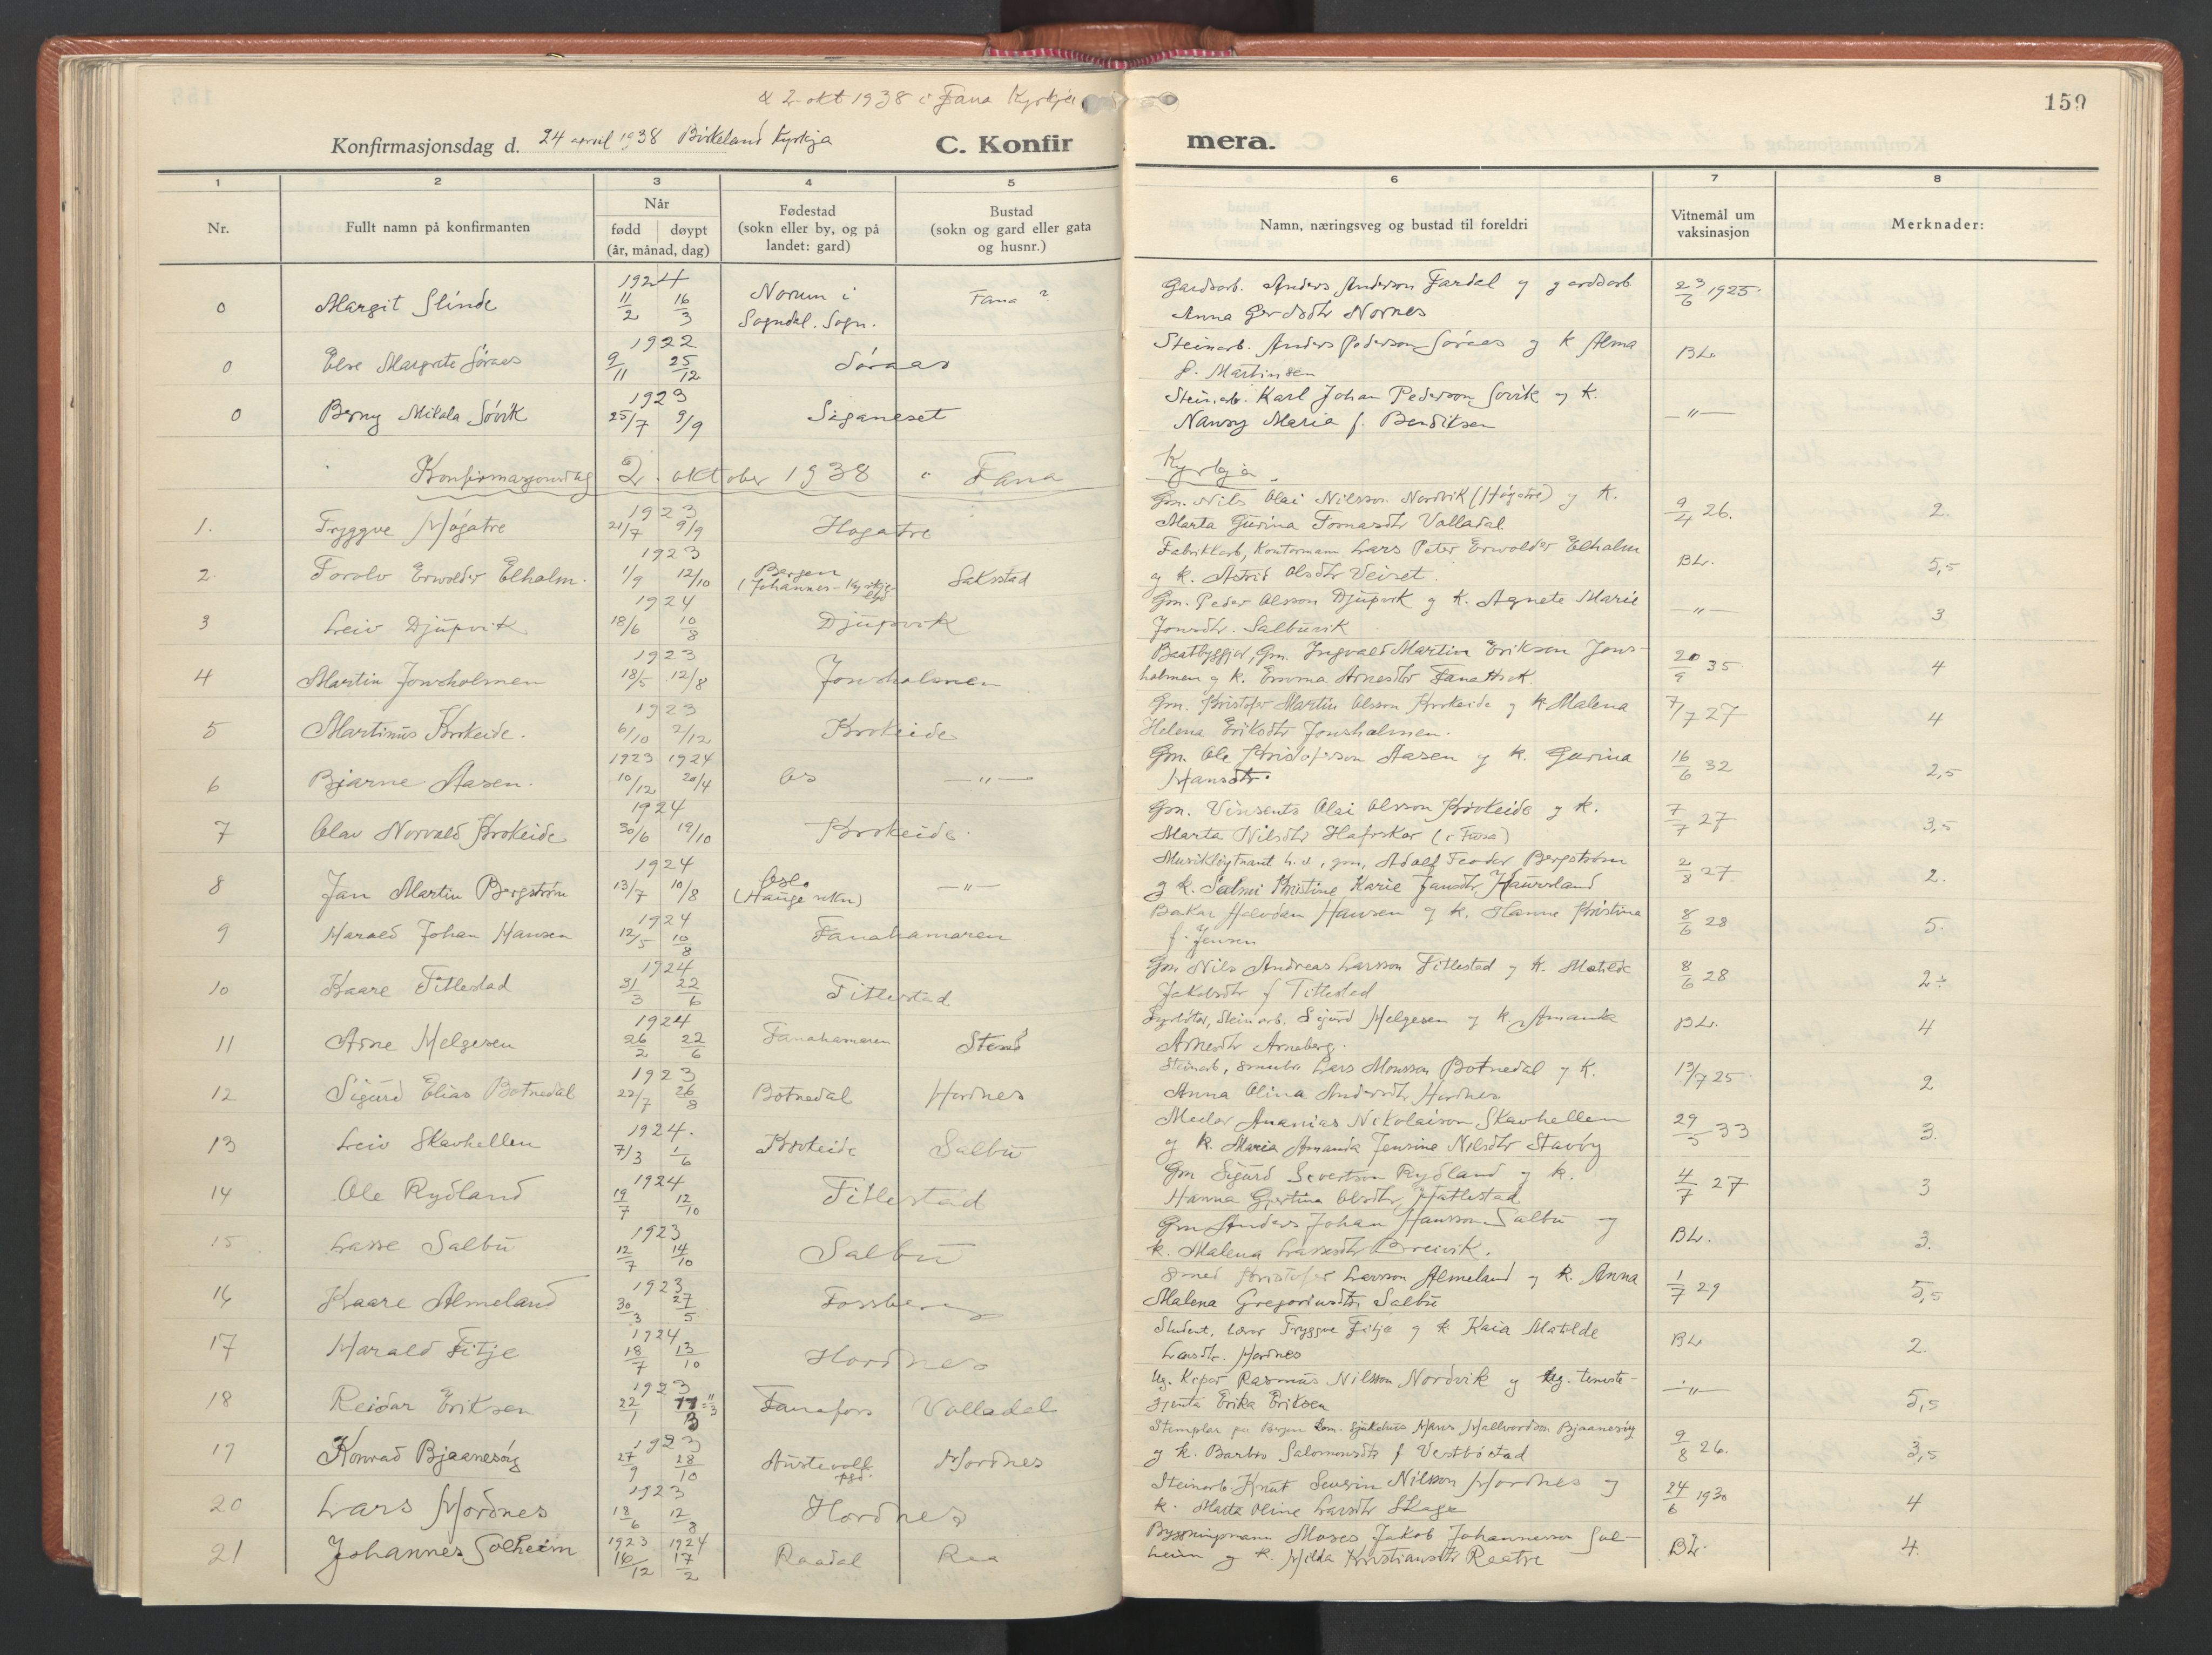 & 2 okt 1938 i Fana Kyrkja
159
Konfirmasjonsdag d. 24 april 1938 Birkeland kyrkja C. Konfir mera.
1 2 3 4 5 6 7 8
Nr. Fullt namn på konfirmanten Når fødd døypt (år, månad, dag) Fødestad (sokn eller by, og på landet: gard) Bustad (sokn og gard eller gata og husnr.) Namn, næringsveg og bustad til foreldri Vitnemål um vaksinasjon Merknader:
1924
0 Margit Slinde 11/2 16/3 Norum i Sogndal. Sogn. Fana ? Gardsarb. Anders Anderson Fardal og gardsarb
Anna Nornes 23/6 1925.
1922
0 Else Margrete Søraas 9/11 25/12 Søraas Steinarb. Anders Pederson Søraas og k Alma
f. Martinsen BL.
1923
0 Berny Mikala Søvik 25/7 9/9 Siganeset Steinarb. Karl Johan Pederson Søvik og k.
Nancy Maria f. Bendiksen —"—
Konfirmasjonsdag 2. oktober 1938 i Fana Kyrkja
1923
1. Tryggve Høgatre 21/7 9/9 Hogatre Gm. Nils Olai Nilsson Nordvik (Høgatre) og k.
Marta Gurina Tomasdtr Valladal 9/4 26. 2.
1923
2. Torolv Erwolder Elholm. 1/9 12/10 Bergen (Johannes-kyrkje Saksstad Fabrikkarb, Kontormann Lars Peter Erwolder Elholm
og k. Astrid Olsdtr Veiset. BL. 5,5
1924
3 Leiv Djupvik 18/6 10/8 Djupvik Gm. Peder Olsson Djupvik og k. Agnete Marie
Jonsdtr. Salbuvik —"— 3
1923
4 Martin Jonsholmen 18/5 12/8 Jonsholmen Baatbyggjar, Gm. Ingvald Martin Erikson Jons-
holmen og k. Emma Arnesdtr 20/9 35. 4
1923
5 Martinus Krokeide. 6/10 2/12 Krokeide Gm. Kristofer Martin Olsson Krokeide og k. Malena
Helena Eriksdtr Jonsholmen. 7/7 27 4
1923 1924
6 Bjarne Aasen. 10/12 20/4 Os —"— Gm. Ole Kristoferson Aasen og k. Gurina
Hansdtr. 16/6 32 2,5
1924
7 Olav Norvald Krokeide 30/6 19/10 Krokeide. Gm. Vinsents Olai Olsson Krokeide og k.
Marta Nilsdtr Hafskor (i Fusa) 7/7 27 3,5
1924
8 Jan Martin Bergstrøm 13/7 10/8 Oslo (Hauge sokn) —"— Musikkløytnant h.v., gm, Adolf Teodor Bergstrøm
og k. Salmi Kristine Karie Jansdtr Haursland 2/8 27. 2.
1924
9 Harald Johan Hansen 12/5 10/8 Fanahamaren Bakar Halvdan Hansen og k. Hanne Kristina
f. Jensen 8/6 28 5.
1924
10 Kaare Titlestad 31/3 22/6 Titlestad Gm Nils Andreas Larsson Titlestad og k. Matilde
Jakobsdtr f Titlestad 8/6 28 2÷
1924
11 Arne Helgesen 26/2 22/6 Fanahamaren Steinarb. Sigurd Helgesen og k. Amanda
Arnesdtr Arneberg. BL. 4
1923
12 Sigurd Elias Botnedal 22/7 26/8 Botnedal Hordnes Steinarb, Lars Monsson Botnedal og k.
Anna Olina Andersdtr Hordnes 13/7 25. 2
1924.
13 Leiv Skavhellen 7/3 1/6 Krokeide Salbu Meclar Ananias Nikolaison Skavhellen
og k. Maria Amanda Jensine Nilsdtr Stavøy 29/3 33 3.
1924
14 Ole Rydland 19/7 12/10 Titlestad Gm Sigurd Severtson Rydland og k.
Hanna Gjertina Olsdtr, Hatlestad 4/7 27 3
1923
15 Lasse Salbu 12/7 14/10 Salbu Gm Anders Johan Hansson Salbu og
k. Malena Lassesdtr Breivik. BL. 3.
1923
16 Kaare Almeland 30/3 27/5 Fossberg Smed Kristofer Larsson Almeland og k. Anna
Malena Gregoriusdtr Salbu 1/7 29 5,5
1924
17 Harald Fitje 18/7 13/10 Hordnes Student, lærar Tryggve Fitje og k Kaia Matilde
Larsdtr. Hordnes BL 2.
1923
18 Reidar Eriksen 22/1 11/3 Fanafors Valladal Ug. Rasmus Nilsson Nordvik og ug. teneste-
gjenta Erika Eriksen —"— 5,5
1923
19 Konrad Bjaanesøy 27/9 28/10 Austevoll pgd. Hordnes Stemplar paa Bergen kom. Sjukehus Hans Hallvardson Bjaanesøy
og k. Barbro Salomonsdtr f Vestbøstad 9/8 26. 3,5
1923
20 Lars Hordnes 18/6 12/8 Hordnes Steinarb Knut Severin Nilsson Hordnes og
k. Marta Oline Larsdtr Skage 24/6 1930 4
1923 1924
21 Johannes Solheim 16/12 17/2 Raadal Raa Bygningsmann Moses Jakob Johannesson Sol-
heim og k. Hilda Kristiansdtr Raatre BL. 4.